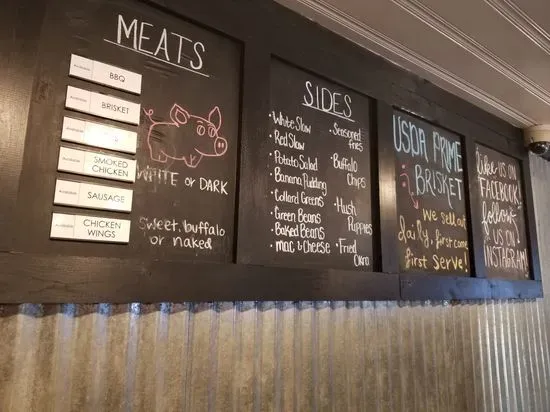 MEATS
BBQ
BRISKET
SMOKED
CHICKEN
SAUSAGE
CHICKEN
WINGS
WHITE or DARK
Sweet, buffalo
or naked
SIDES
• White Slaw
• Red Slaw
• Potato Salad
• Banana Pudding
• Collard Greens
• Green Beans
• Baked Beans
• mac & Cheese
• Seasoned
fries
• Buffalo
Chips
• Hush
Puppies
• Fried
Okra
USDA PRIME
BRISKET
We sell out
daily, first come
first serve!
like us on
FACEBOOK!
follow
US ON
INSTAGRAM!